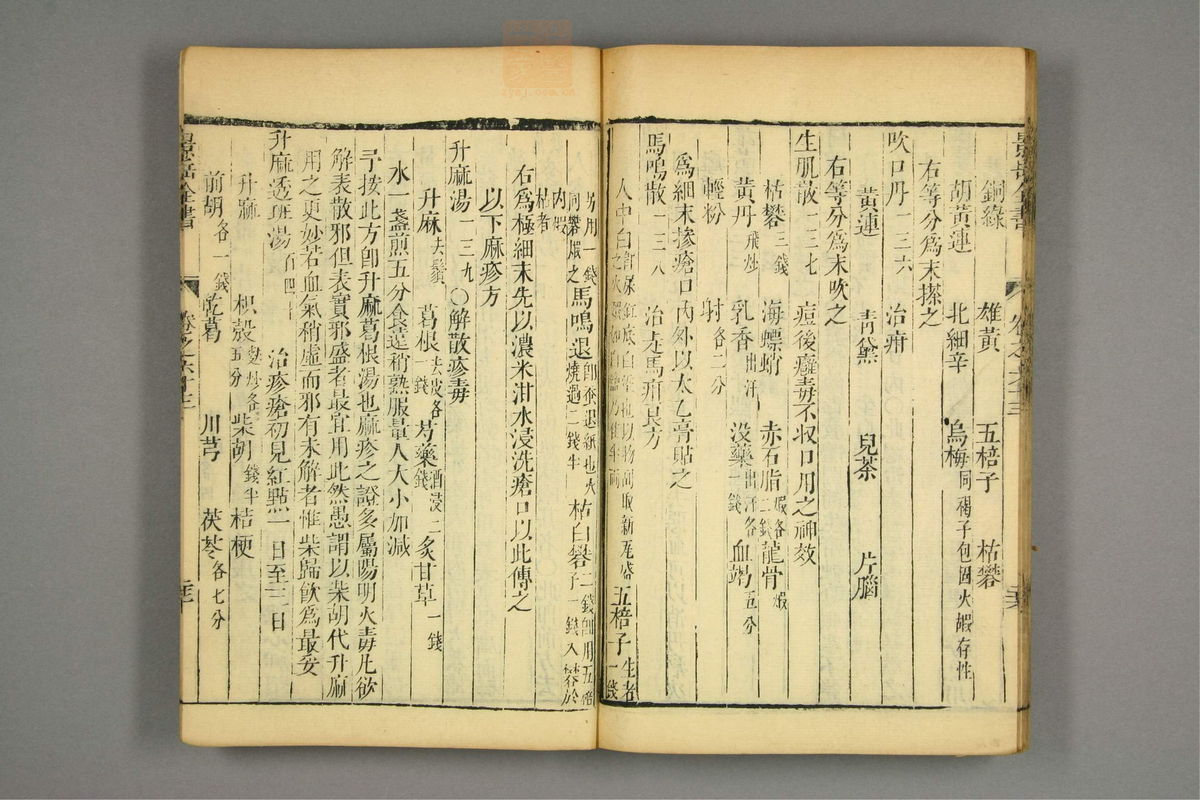 景岳全書 卷之六十三
銅綠 雄黃 五棓子 枯礬
胡黃連 北細辛 烏梅同褐子包固火煅存性
右等分爲末搽之
吹口丹一三六 治疳
黃連 青黛 兒茶 片腦
右等分爲末吹之
生肌散一三七 痘後癰毒不收口用之神效
枯礬三錢 海螵蛸 赤石脂煅各二錢 龍骨煅
黃丹飛炒 乳香出汗 没藥出汗各一錢 血竭五分
輕粉 射各二分
爲細末摻瘡口內外以太乙膏貼之
馬鳴散一三八 治走馬疳良方
人中白 五棓子生者一錢
另用一錢同礬煅之 馬鳴退即蚕退紙也火燒過二錢半 枯白礬二錢卽用五棓子一錢入礬於
內煅枯者
右爲極細末先以濃米泔水浸洗瘡口以此傅之
以下麻疹方
升麻湯一三九 ○解散疹毒
升麻去鬚 葛根去皮各一錢 芍藥酒浸二錢 炙甘草一錢
水一盞煎五分食遠稍熱服量人大小加減
予按此方卽升麻葛根湯也麻疹之證多屬陽明火毒凡欲
解表散邪但表實邪盛者最宜用此然愚謂以柴胡代升麻
用之更妙若血氣稍虛而邪有未解者惟柴歸飮爲最妥
升麻透斑湯百四十 治疹瘡初見紅點一日至三日
升麻 枳殼麩炒各五分 柴胡錢半 桔梗
前胡各一錢 乾葛 川芎 茯苓各七分
景岳全書